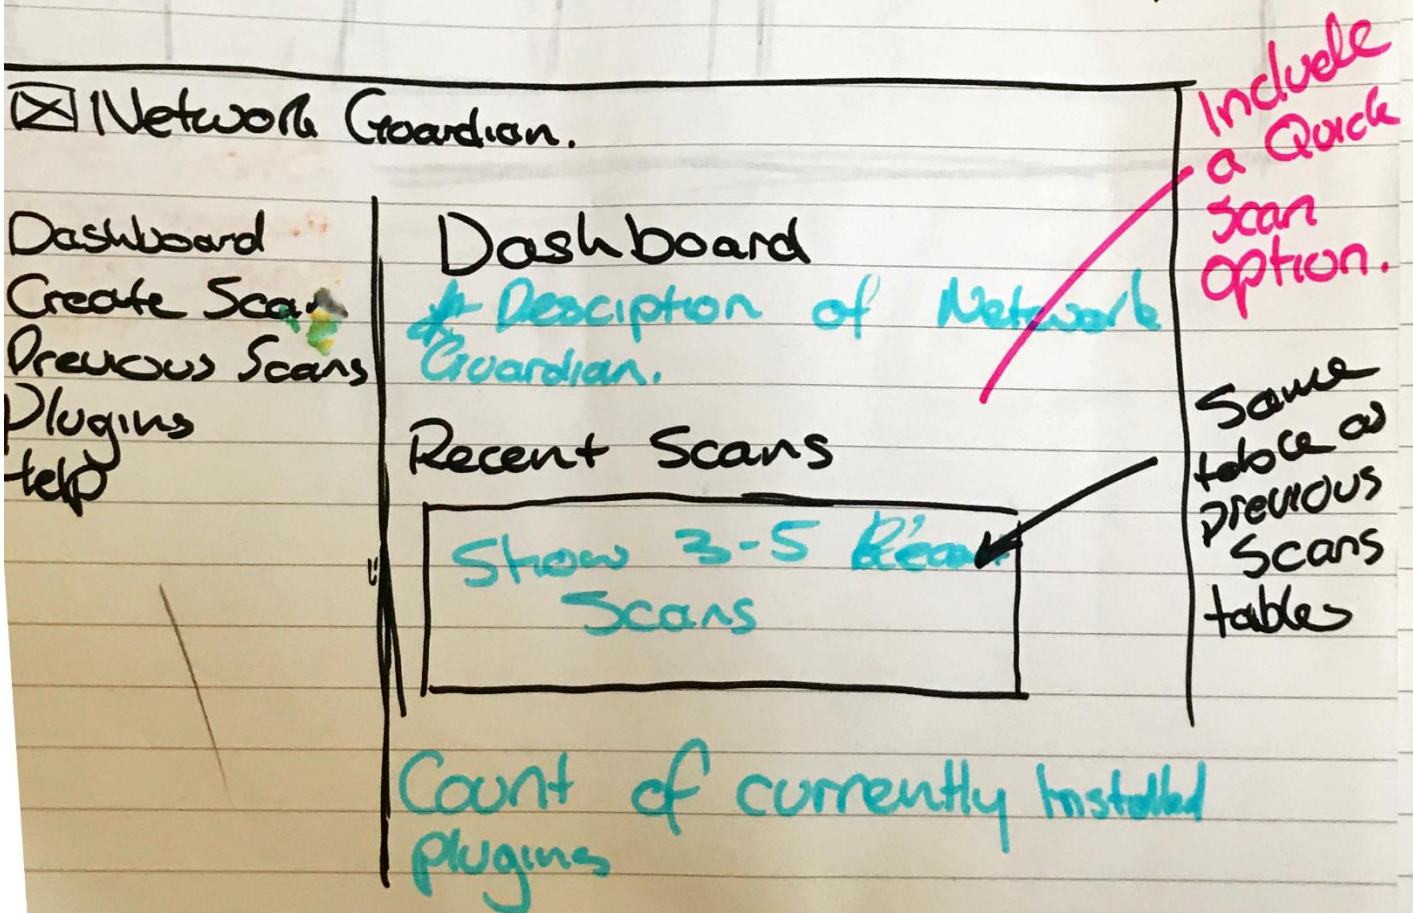 Network Guardian.
Dashboard
Create Scan
Previous Scans
Plugins
Help
Dashboard
* Desciption of Network
Guardian.
Recent Scans
Show 3-5 Recent
Scans
Count of currently Installed
plugins
Include
a Quick
Scan
option.
Same
table as
previous
Scans
tables